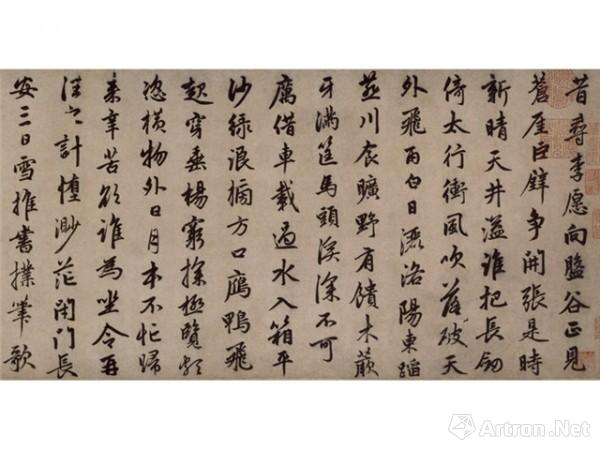 昔尋李愿向盤谷正見
蒼崖巨壁争開張是時
新晴天井溢誰把長劒
倚太行衝風吹落破天
外飛雨白日灑洛陽東蹈
燕川食曠野有饋木蕨
牙满筐馬頭溪深不可
厲借車載過水入箱平
沙緑浪榜方口鴈鴨飛
起穿垂楊窮探極覽頗
恣横物外日月本不忙歸
来辛苦欲誰為坐令再
往之計堕渺茫閉門長
安三日雪推書撲筆歌
Artron.Net